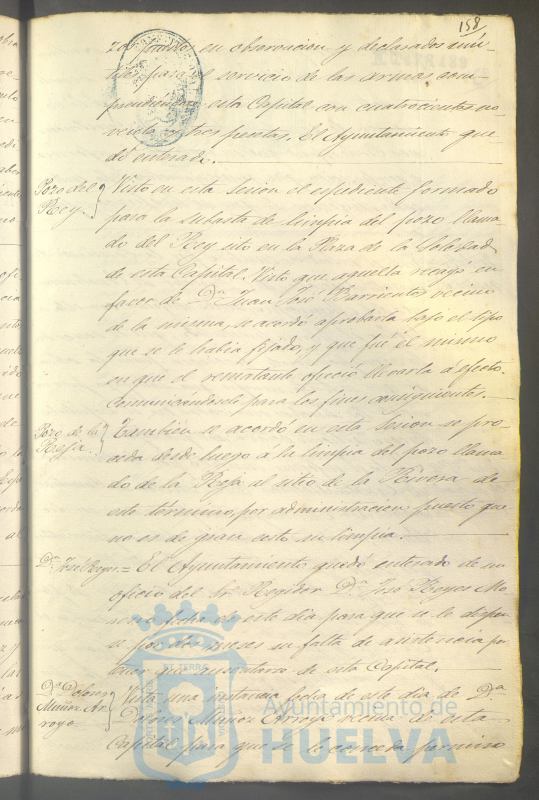 158
zos              en observacion y declarados inú-
tiles para el servicio de las armas com-
              esta Capital con cuatrocientas no-
venta y tres pesetas. El Ayuntamiento que-
dó enterado.
Pozo del Rey. } Visto en esta sesion el espediente formado
para la subasta de limpia del pozo llama-
do del Rey sito en la Plaza de la Soledad
de esta Capital. Visto que aquella recayó en
favor de Dn. Juan José Barrientos vecino
de la misma, se acordó aprobarla bajo el tipo
que se le habia fijado, y que fué el mismo
en que el rematante ofreció llevarla a efecto.
Comunicándose para los fines consiguientes.
Pozo de la Reja. } Tambien se acordó en esta sesion se pro-
ceda desde luego a la limpia del pozo llama-
do de la Reja al sitio de la         de
este término, por administracion puesto que
no es de gran costo su limpia.
Dn. José Reyes = El Ayuntamiento quedó enterado de un
oficio del Sr. Regidor Dn. José Reyes Mo-
       fecha de este dia para que se le dispen-
se por dos meses su falta de asistencia por
tener que ausentarse de esta Capital.
Da. Dolores Muñoz Ar-royo } Vista una instancia fecha de este dia de Da.
Dolores Muñoz Arroyo vecina de esta
Capital para que se le conceda permiso
Ayuntamiento de
HUELVA